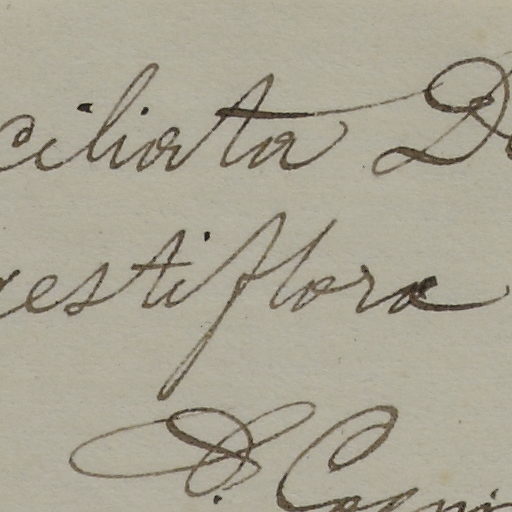 ciliata D
estiflora
A. Cogni